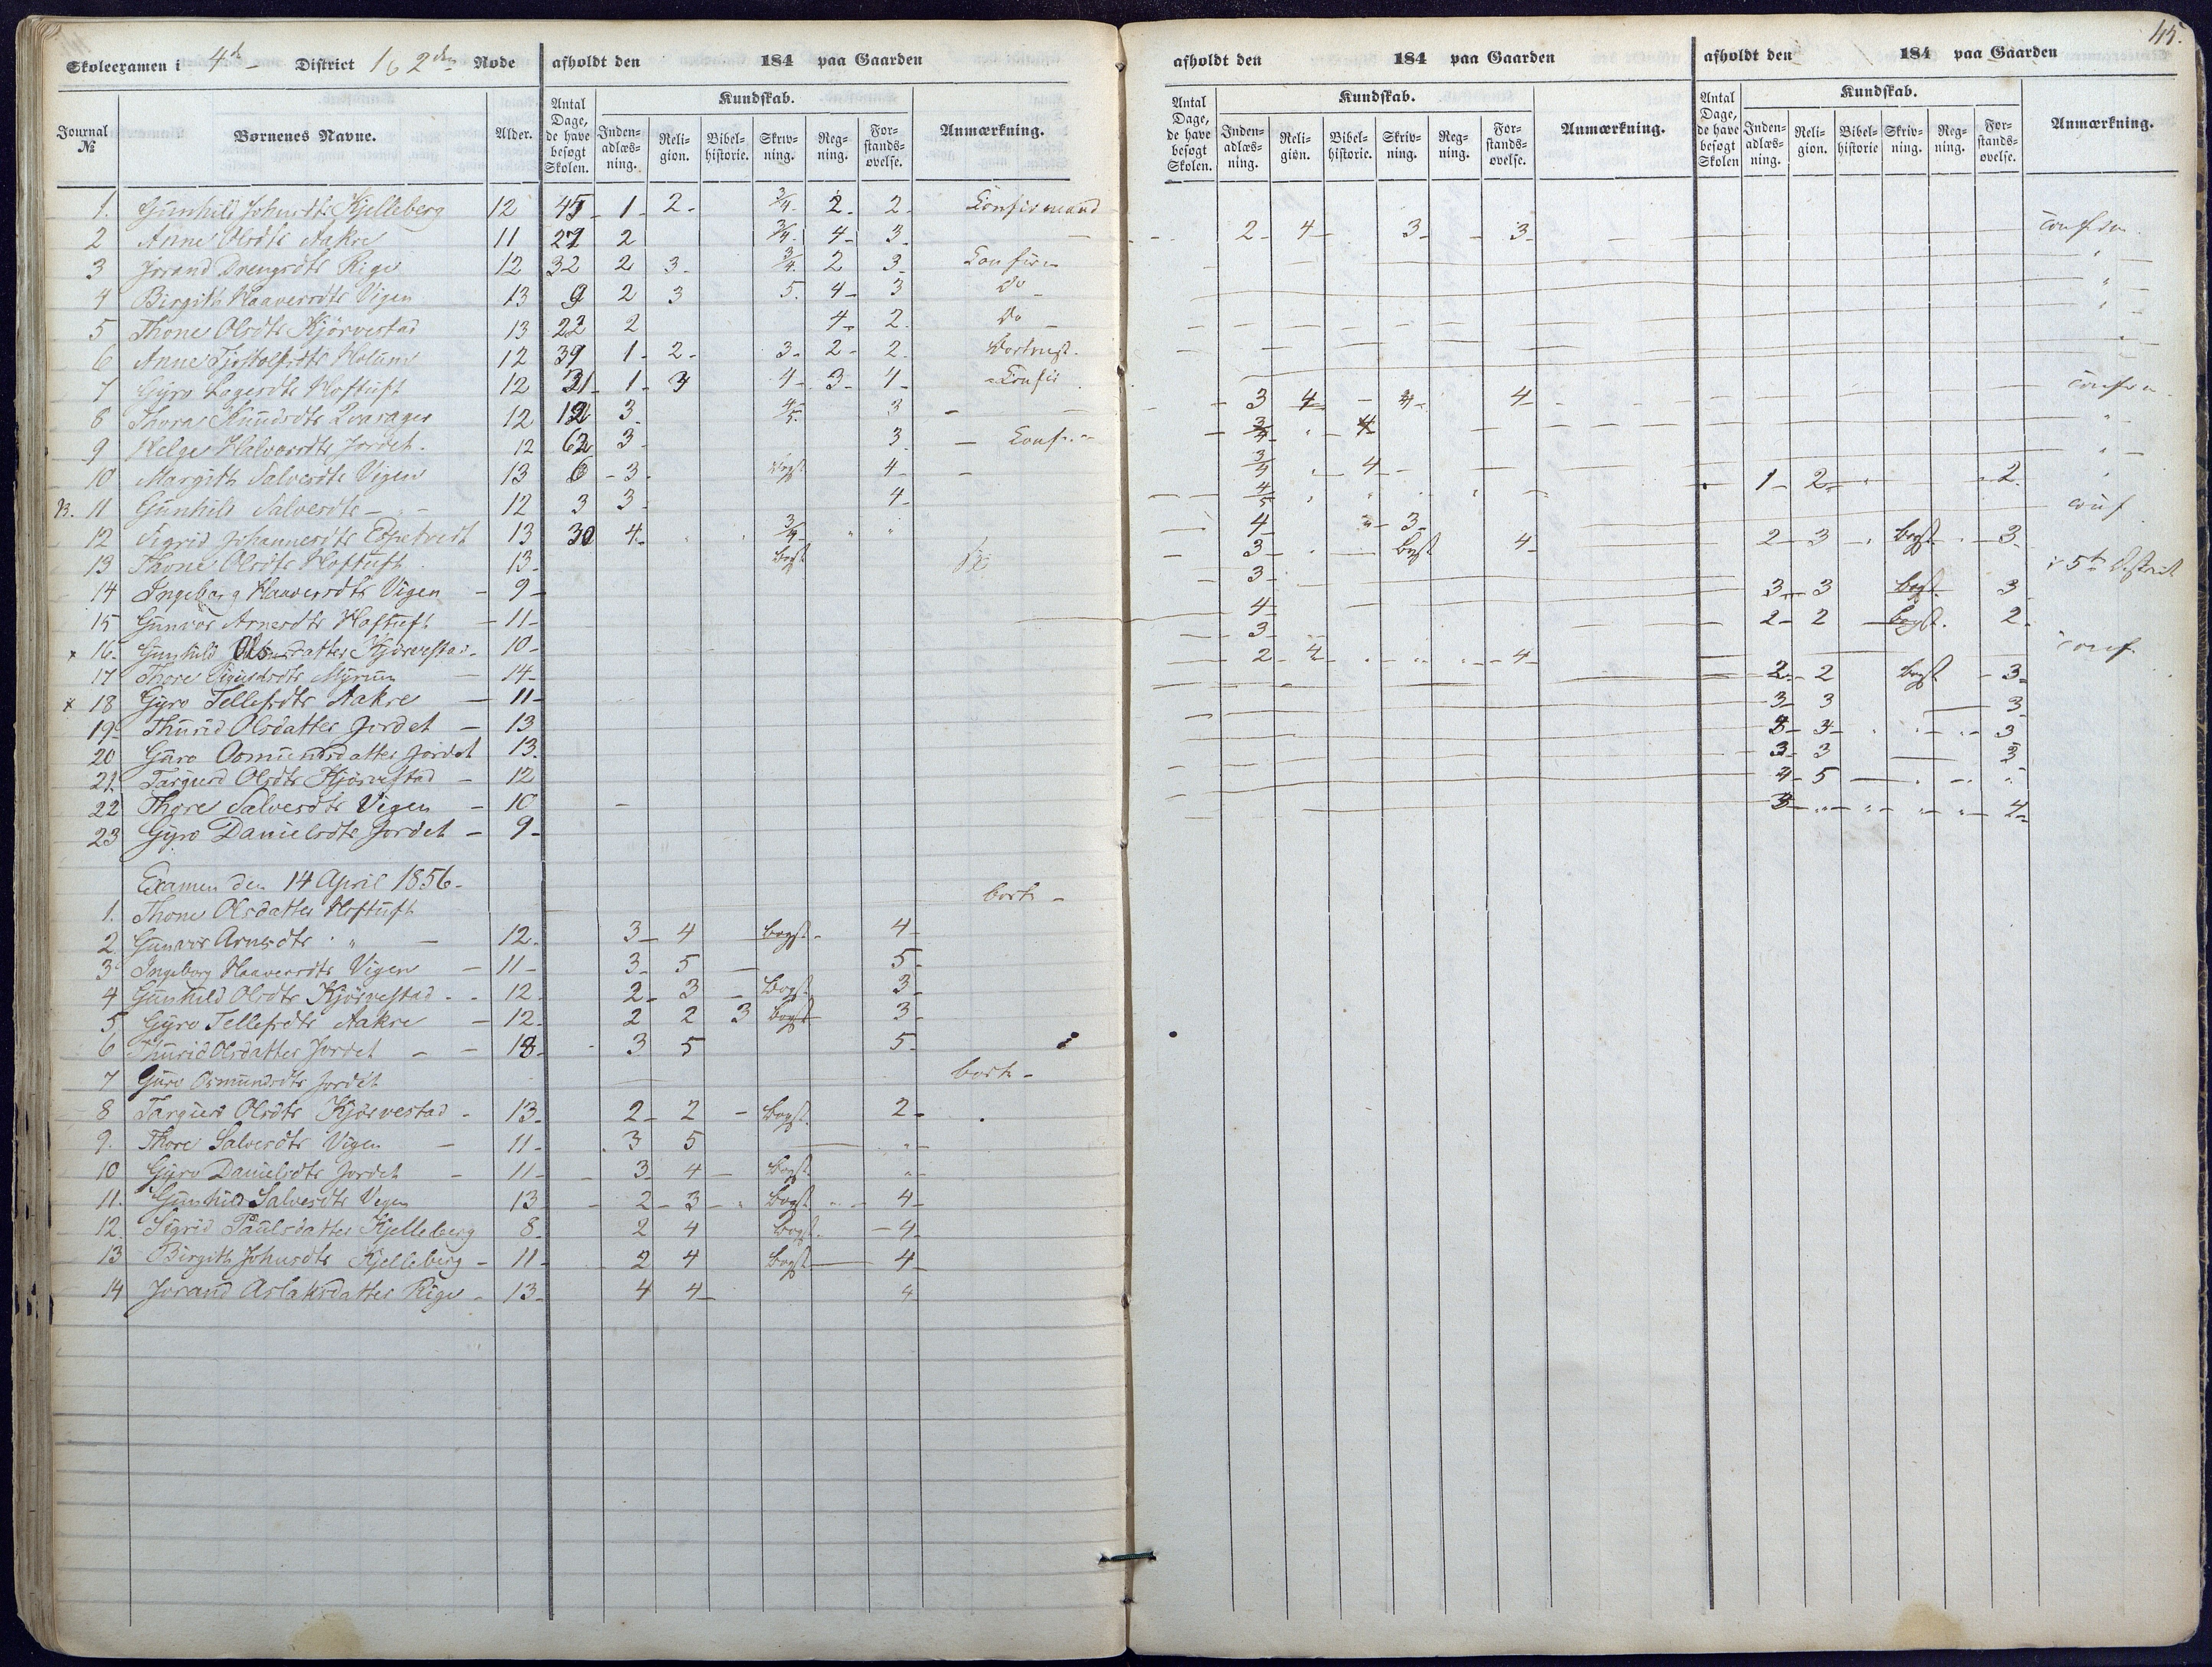 Skoleexamen i 4de District 1 & 2den Rode
afholdt den 184 paa Gaarden
Journal № Børnenes Navne. Alder. Antal Dage, de have besøgt Skolen. Kundskab. Inden-adlæs-ning. Reli-gion. Bibel-historie. Skriv-ning. Reg-ning. For-stands-øvelse. Anmærkning.
1. Gunhild Johnsdtr Kjelleberg 12 45 1 2 3/4 2 2 Confirmand
2 Anne Olsdtr Aakre 11 27 2 3/4 4 3
3 Jorand Drengsdtr Rige 12 32 2 3 3/4 2 3 Confirm
4 Birgith Haaversdtr Vigen 13 9 2 3 5 4 3 Do
5 Thone Olsdtr Kjörvestad 13 22 2 4 2 Do
6 Anne Holum 12 39 1 2 3 2 2 Bortrejst
7 Gyro Hoftuft 12 31 1 3 4 3 4 Confir
8 Thora Knudsdtr 12 12 3 4/5 3
9 Helge Halvorsdtr Jordet 12 62 3 3 Conf
10 Margith Salvesdtr Vigen 13 6 3 Bogst 4
11 Gunhild Salvesdtr " 12 3 3 4
12 Sigrid Johannesdtr 13 30 4 " " 3/4 " "
13 Thone Olsdtr Hoftuft 13 Bogst
14 Ingeborg Haaversdtr Vigen 9
15 Gunvor Arnesdtr Hoftuft 11
x 16. Gunhild Olsdatter Kjörvestad 10
17 Thore Myrum 14
x 18 Gyro Tellefsdtr Aakre 11
19 Thurid Olsdatter Jordet 13
20 Guro Osmundsdatter Jordet 13
21. Targerd Olsdtr Kjörvestad 12
22 Thore Salvesdtr Vigen 10
23 Gyro Danielsdtr Jordet 9
Examen den 14 April 1856
1. Thone Olsdatter Hoftuft bort
2. Gunvor Arnesdtr " 12 3 4 bogst 4
3 Ingeborg Haaversdtr Vigen 11 3 5 5
4 Gunhild Olsdtr Kjörvestad 12 2 3 Bogst 3
5 Gyro Tellefsdtr Aakre 12 2 2 3 Bogst 3
6 Thurid Olsdatter Jordet 18 3 5 5
7 Guro Osmundsdtr Jordet bort
8 Targerd Olsdtr Kjörvestad 13 2 2 Bogst 2
9. Thore Salvesdtr Vigen 11 3 5 "
10 Gyro Danielsdtr Jordet 11 3 4 Bogst "
11. Gunhild Salvesdtr Vigen 13 2 3 " Bogst " 4
12. Sigrid Paulsdatter Kjelleberg 8 2 4 Bogst 4
13 Birgith Johnsdtr Kjelleberg 11 2 4 Bogst 4
14 Jorand Aslaksdatter Rige 13 4 4 4
afholdt den 184 paa Gaarden
Antal Dage, de have besøgt Skolen. Kundskab. Inden-adlæs-ning. Reli-gion. Bibel-historie. Skriv-ning. Reg-ning. For-stands-øvelse. Anmærkning.
2 4 3 3
3 4 4 4
3/4 " 4
3/4 " 4
4/5 " " " "
4 " 3
3 " bogst 4
3
4
3
2 4 " " " 4
45.
afholdt den 184 paa Gaarden
Antal Dage, de have besøgt Skolen Kundskab. Inden-adlæs-ning. Reli-gion. Bibel-historie Skriv-ning. Reg-ning. For-stands-øvelse. Anmærkning.
confirm
"
"
"
"
confirm
"
"
1 2 " 2 "
conf
2 3 " Bogst " 3
i 5te District
3 3 bogst 3
2 2 bogst 2
conf
2 2 bogst 3
3 3 3
3 3 " " " 3
3 3 3
4 5 " "
3 " " " " 4